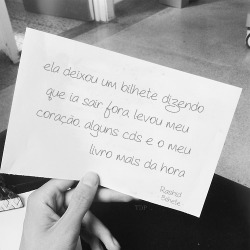 ela deixou um bilhete dizendo
que ia sair fora levou meu
coração, alguns cds e o meu
livro mais da hora
Rashid
Bilhete